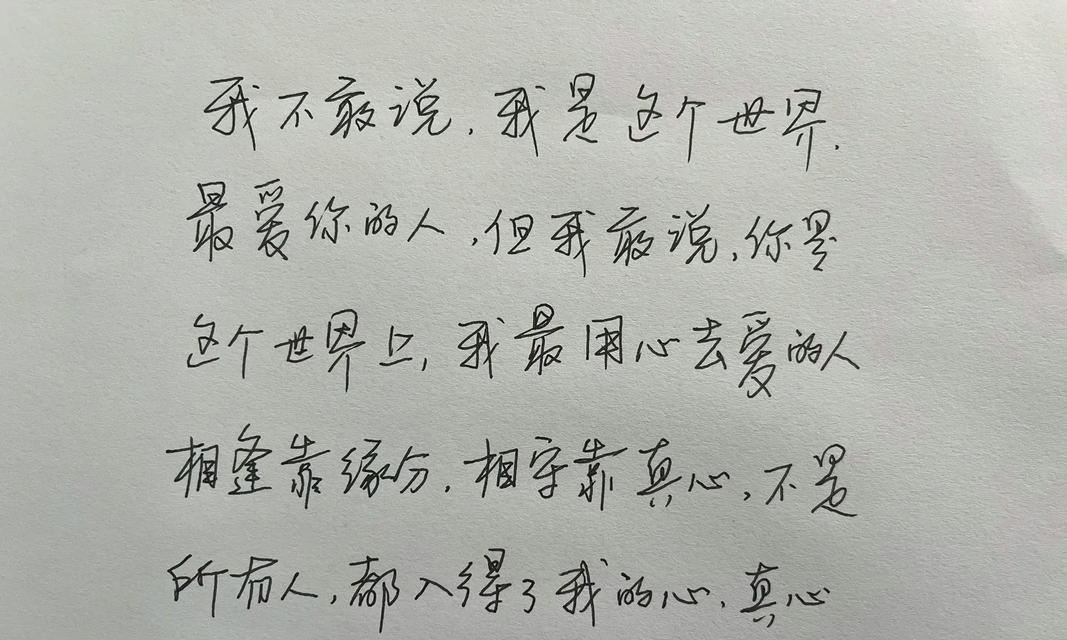 我不敢说，我是这个世界，
最爱你的人，但我敢说，你是
这个世界上，我最用心去爱的人
相逢靠缘分，相守靠真心，不是
所有人，都入得了我的心，真心